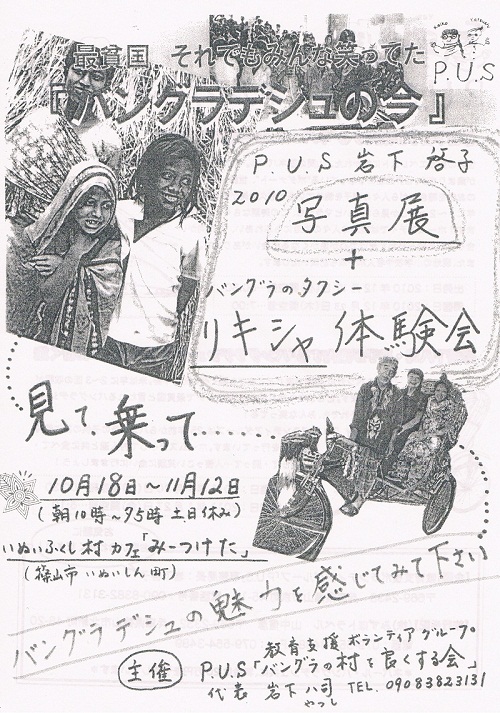 Keiko
P.U.S
最貧国 それでもみんな笑ってた
『バングラデシュの今』
P.U.S 岩下 啓子
2010 写真展
+
バングラのタクシー
リキシャ体験会
見て、乗って・・・・・・・・
10月18日～11月12日
(朝10時～夕5時 土日休み)
いぬいふくし村 カフェ「みーつけた」
(篠山市 いぬいしん町)
バングラデシュの魅力を感じてみて下さい
教育支援 ボランティアグループ
主催 P.U.S「バングラの村を良くする会」
代表 岩下 八司 TEL. 09083823131
やつし